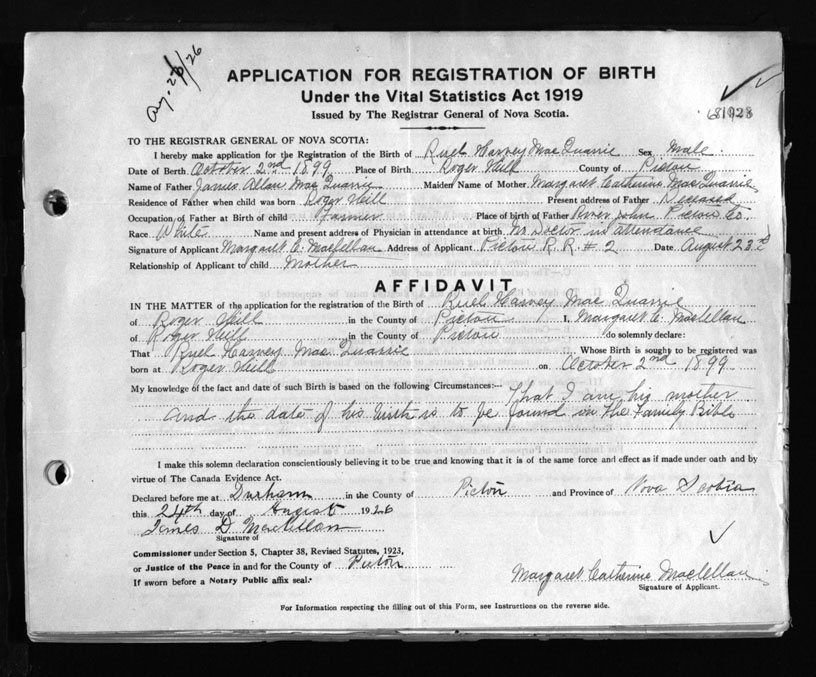 Aug. 28/26
APPLICATION FOR REGISTRATION OF BIRTH
Under the Vital Statistics Act 1919
Issued by The Registrar General of Nova Scotia.
TO THE REGISTRAR GENERAL OF NOVA SCOTIA:
I hereby make application for the Registration of the Birth of Ruel Harvey MacQuarrie Sex Male.
Date of Birth October 2nd 1899 Place of Birth Roger Hill County of Pictou
Name of Father James Allan MacQuarrie Maiden Name of Mother Margaret Catherine MacQuarrie
Residence of Father when child was born Roger Hill Present address of Father Deceased
Occupation of Father at Birth of child Farmer Place of birth of Father River John Pictou Co.
Race White Name and present address of Physician in attendance at birth No Doctor in attendance
Signature of Applicant Margaret C. Maclellan Address of Applicant Pictou R.R. # 2 Date August 23rd
Relationship of Applicant to child Mother
AFFIDAVIT
IN THE MATTER of the application for the registration of the Birth of Ruel Harvey Mac Quarrie
of Roger Hill in the County of Pictou I, Margaret C. Maclellan
of Roger Hill in the County of Pictou do solemnly declare:
That Ruel Harvey Mac Quarrie Whose Birth is sought to be registered was
born at Roger Hill on October 2nd 1899
My knowledge of the fact and date of such Birth is based on the following Circumstances:-- That I am his mother
and the date of his birth is to be found in the Family Bible
I make this solemn declaration conscientiously believing it to be true and knowing that it is of the same force and effect as if made under oath and by
virtue of The Canada Evidence Act.
Declared before me at Durham in the County of Pictou and Province of Nova Scotia
this 24th day of August 1926
James D Maclellan
Signature of
Commissioner under Section 5, Chapter 38, Revised Statutes, 1923,
or Justice of the Peace in and for the County of Pictou
If sworn before a Notary Public affix seal.
Margaret Catherine Maclellan
Signature of Applicant.
For Information respecting the filling out of this Form, see Instructions on the reverse side.